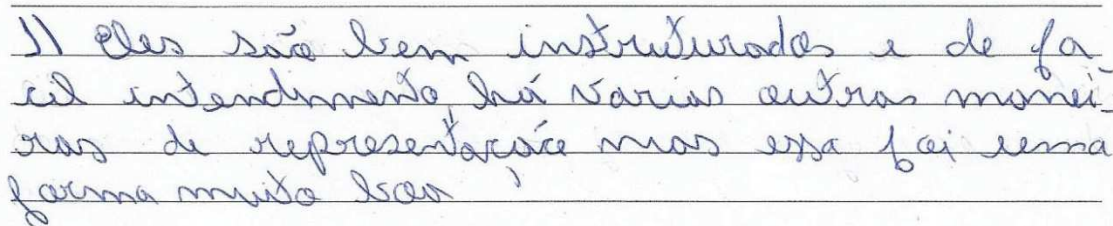 11 Eles são bem instruturados e de fa
cil intendimento, há varias outras manei-
ras de representação mas essa foi uma
forma muito boa